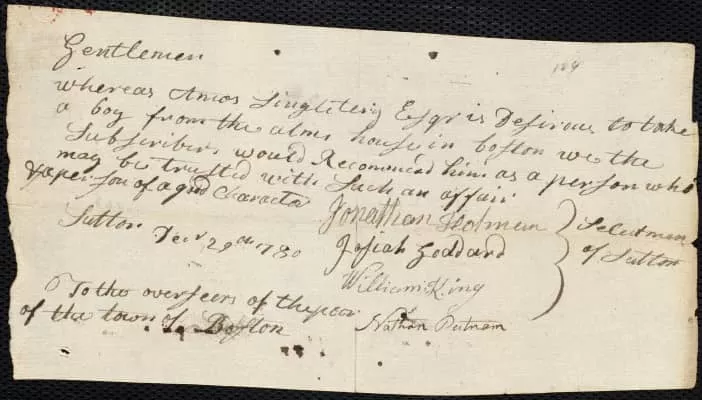 Gentlemen
184
whereas Amos Singlitery Esqr is Desirous to take
a boy from the alms house in boston we the
Subscribers would Recommend him as a person who
may be trusted with Such an affair
& a person of a good Character
Jonathan Holman
Josiah Goddard
William King
Nathan Putnam
Selectmen
of Sutton
Sutton 29 1780
To the overseers of the poor
of the town of Boston